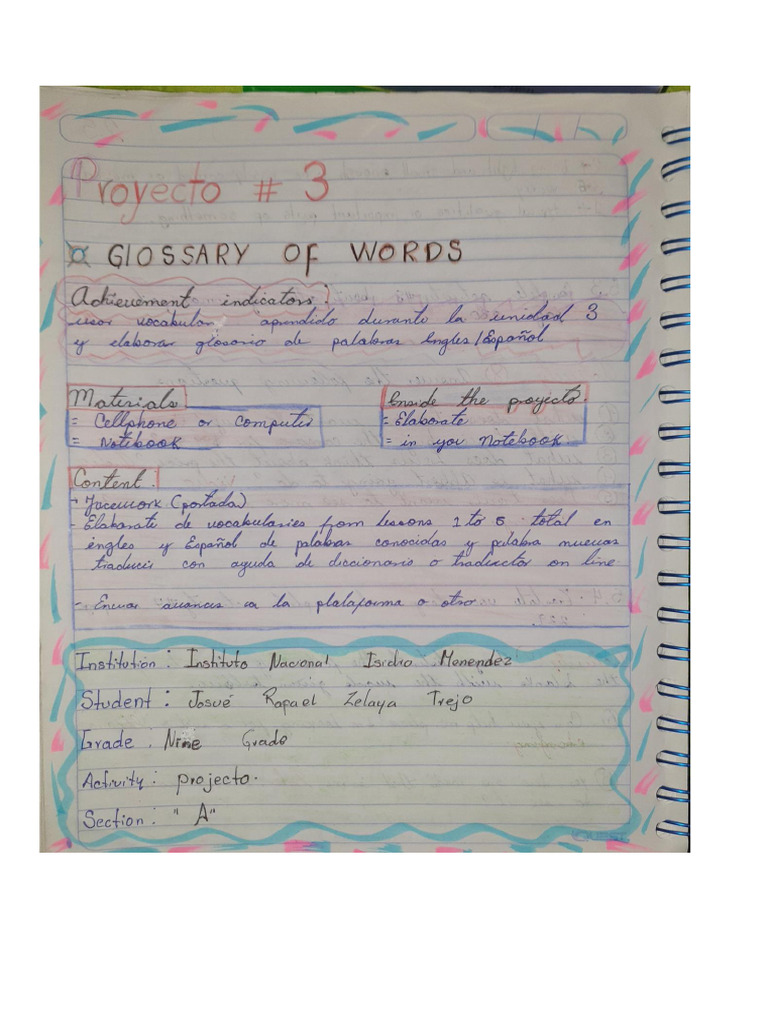 Proyecto # 3
GLOSSARY OF WORDS
Achievement indicators:
usar vocabular aprendido durante la unidad 3
y elaborar glosario de palabras Ingles/Español
Materials
= Cellphone or computer
= Notebook
Inside the proyecto.
= Elaborate
= in you notebook
Content:
- Facework (portada)
- Elaborate de vocabularies from lessons 1 to 5 total en
ingles y Español de palabras conocidas y palabra nuevas
traducir con ayuda de diccionario o traductor on line
- Enviar avances a la plataforma o otro
Institution: Instituto Nacional Isidro Menendez
Student: Josué Rafael Zelaya Trejo
Grade: Nine Grado
Activity: projecto.
Section: "A"